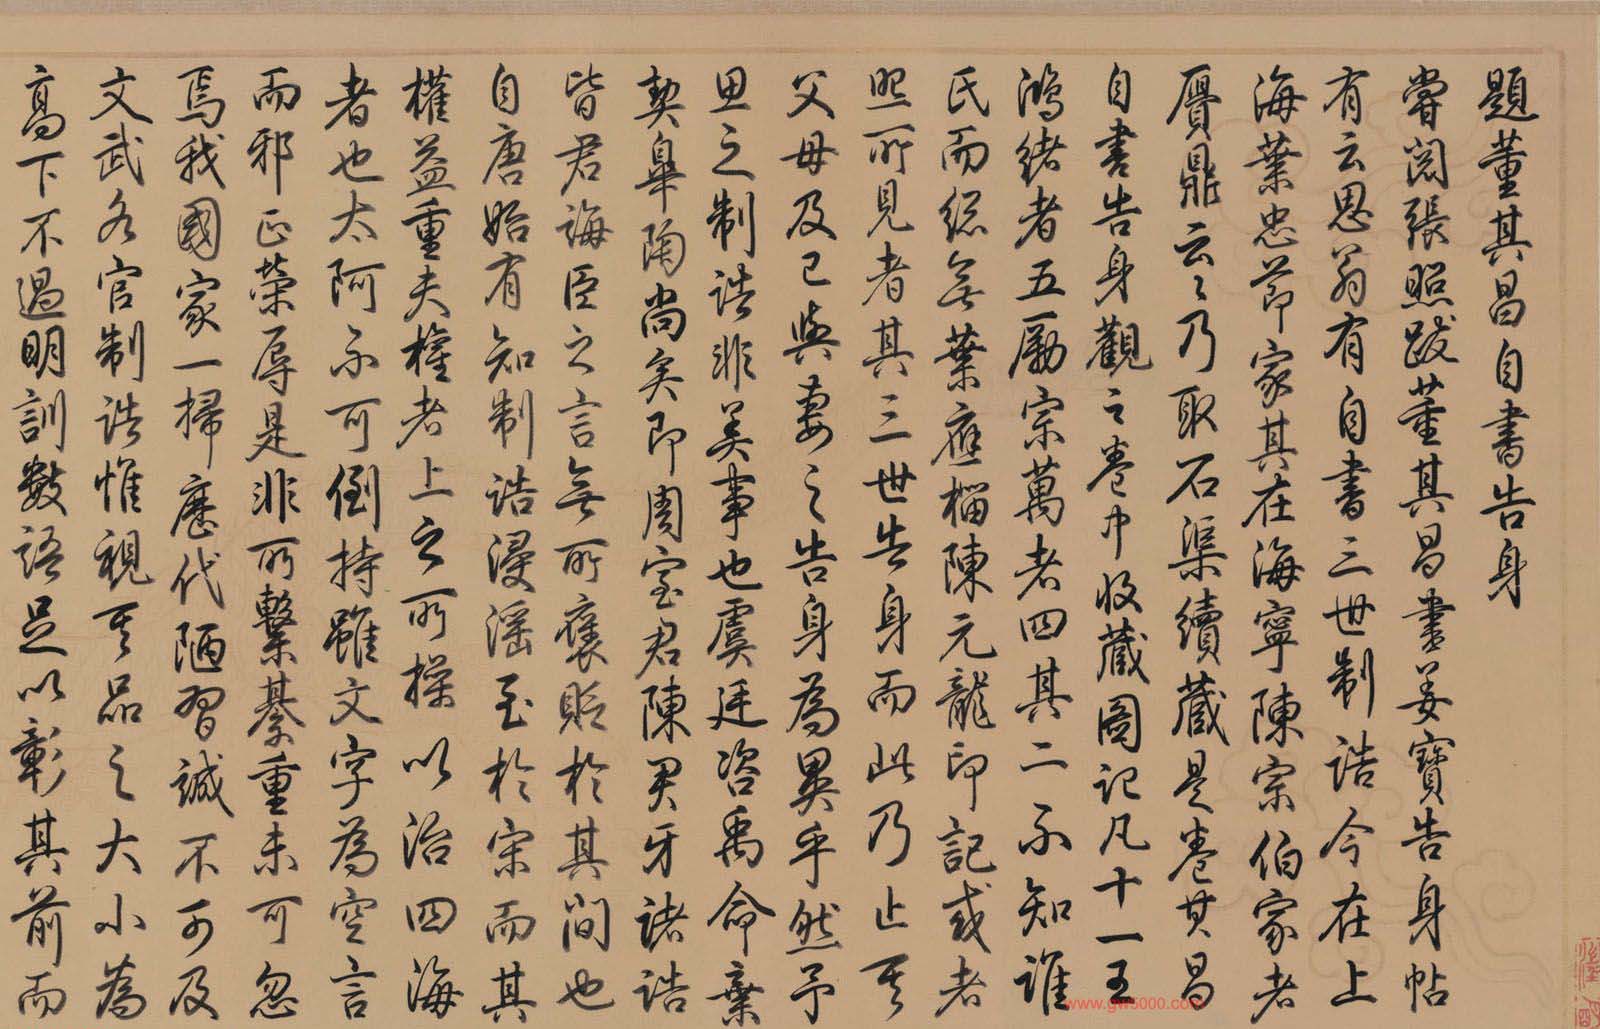 題董其昌自書告身
嘗閱張照跋董其昌書姜寶告身帖
有云思翁有自書三世制誥今在上
海葉忠節家其在海寧陳宗伯家者
贗鼎云云乃取石渠續藏是卷其昌
自書告身觀之卷中收藏圖記凡十一王
鴻緒者五勵宗萬者四其二不知誰
氏而總無葉應榴陳元龍印記或者
照所見者其三世告身而此乃止其
父母及己與妻之告身為異乎然予
思之制誥非美事也虞廷咨禹命棄
契皋陶尚矣即周室君陳君牙諸誥
皆君誨臣之言無所褒貶於其間也
自唐始有知制誥浸淫至於宋而其
權益重夫權者上之所操以治四海
者也太阿不可倒持雖文字為空言
而邪正榮辱是非所繫綦重未可忽
焉我國家一掃歷代陋習誠不可及
文武各官制誥惟視其品之大小為
高下不過明訓數語足以彰其前而
www.gw5000.com